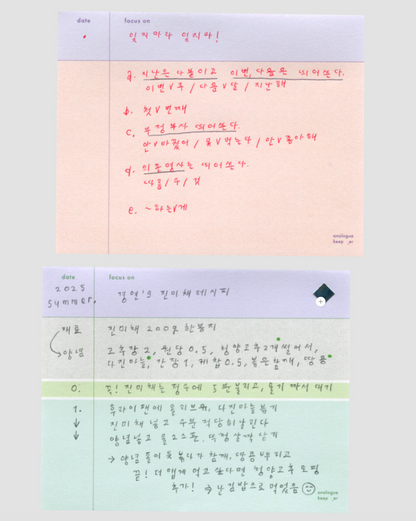 date
focus on
잊지마라 잊지마!
a. 지난은 다붙이고 이번, 다음은 띄어쓴다.
이번∨주 / 다음∨달 / 지난해
b. 첫∨번째
c. 부정부사 띄어쓴다.
안∨바꿨어 / 못∨먹는다 / 안∨좋아해
d. 의존명사는 띄어쓴다.
나름 / 수 / 것
e. ~하는∨게
analogue
keep
date
focus on
2025
summer.
진미채레시피
재료
진미채 200g 한봉지
양념
고추장2, 원당 0.5, 청양고추2개썰어서,
다진마늘, 간장1, 케찹0.5, 볶은참깨, 땅콩
0.
꼭! 진미채는 정수에 5분불리고, 물기 짜서 대기
1.
후라이팬에 올리브유, 다진마늘볶기
진미채 넣고 수분 적당히날린다
양념넣고
→ 양념
끝! 더 맵게 먹고 싶다면 청양고추 토핑
추가! → 난 김밥으로 먹었음
analogue
keep